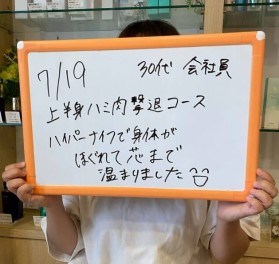 7/19 30代 会社員
上半身ハミ肉撃退コース
ハイパーナイフで身体が
ほぐれて芯まで
温まりました